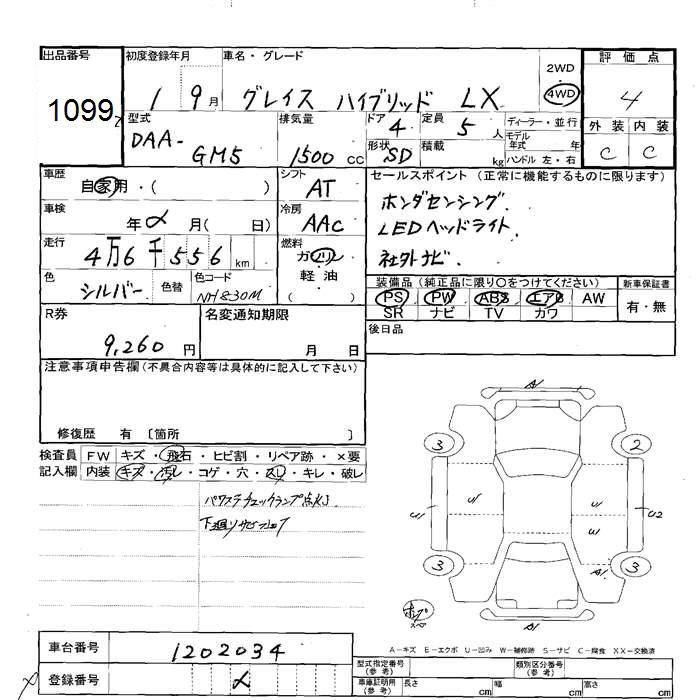 出品番号 初度登録年月 車名・グレード 評価点
1099 1 9月 グレイス ハイブリッド LX 2WD・4WD 4
型式 DAA-GM5 排気量 1500 CC ドア 4 定員 5 人 ディーラー・並行
形状 SD 積載 kg モデル年式 年 ハンドル 左・右
外装 内装
C C
車歴 自家用・( ) シフト AT
セールスポイント (正常に機能するものに限ります)
ホンダセンシング.
LEDヘッドライト.
社外ナビ.
車検 年 月( 日) 冷房 AAC
走行 4万6千556 km 燃料 ガソリン 軽油 ( )
色 シルバー 色替 色コード NH830M
装備品 (純正品に限り○をつけてください) 新車保証書
PS PW ABS エアB AW 有・無
SR ナビ TV カワ
R券 9,260 円 名変通知期限 月 日
後日品
注意事項申告欄 (不具合内容等は具体的に記入して下さい)
修復歴 有 〔箇所 〕
検査員 FW キズ・飛石・ヒビ割・リペア跡・×要
記入欄 内装 キズ・汚レ・コゲ・穴・スレ・キレ・破レ
パワステチェックランプ点灯.
下廻りサビ
A
3 2
U U U U2
U
3 A 3
A
スペア
A-キズ E-エクボ U-凹み W-補修跡 S-サビ C-腐食 XX-交換済
車台番号 1202034
登録番号 メ
型式指定番号(参考) 類別区分番号(参考)
車庫証明用(参考) 長さ cm 幅 cm 高さ cm